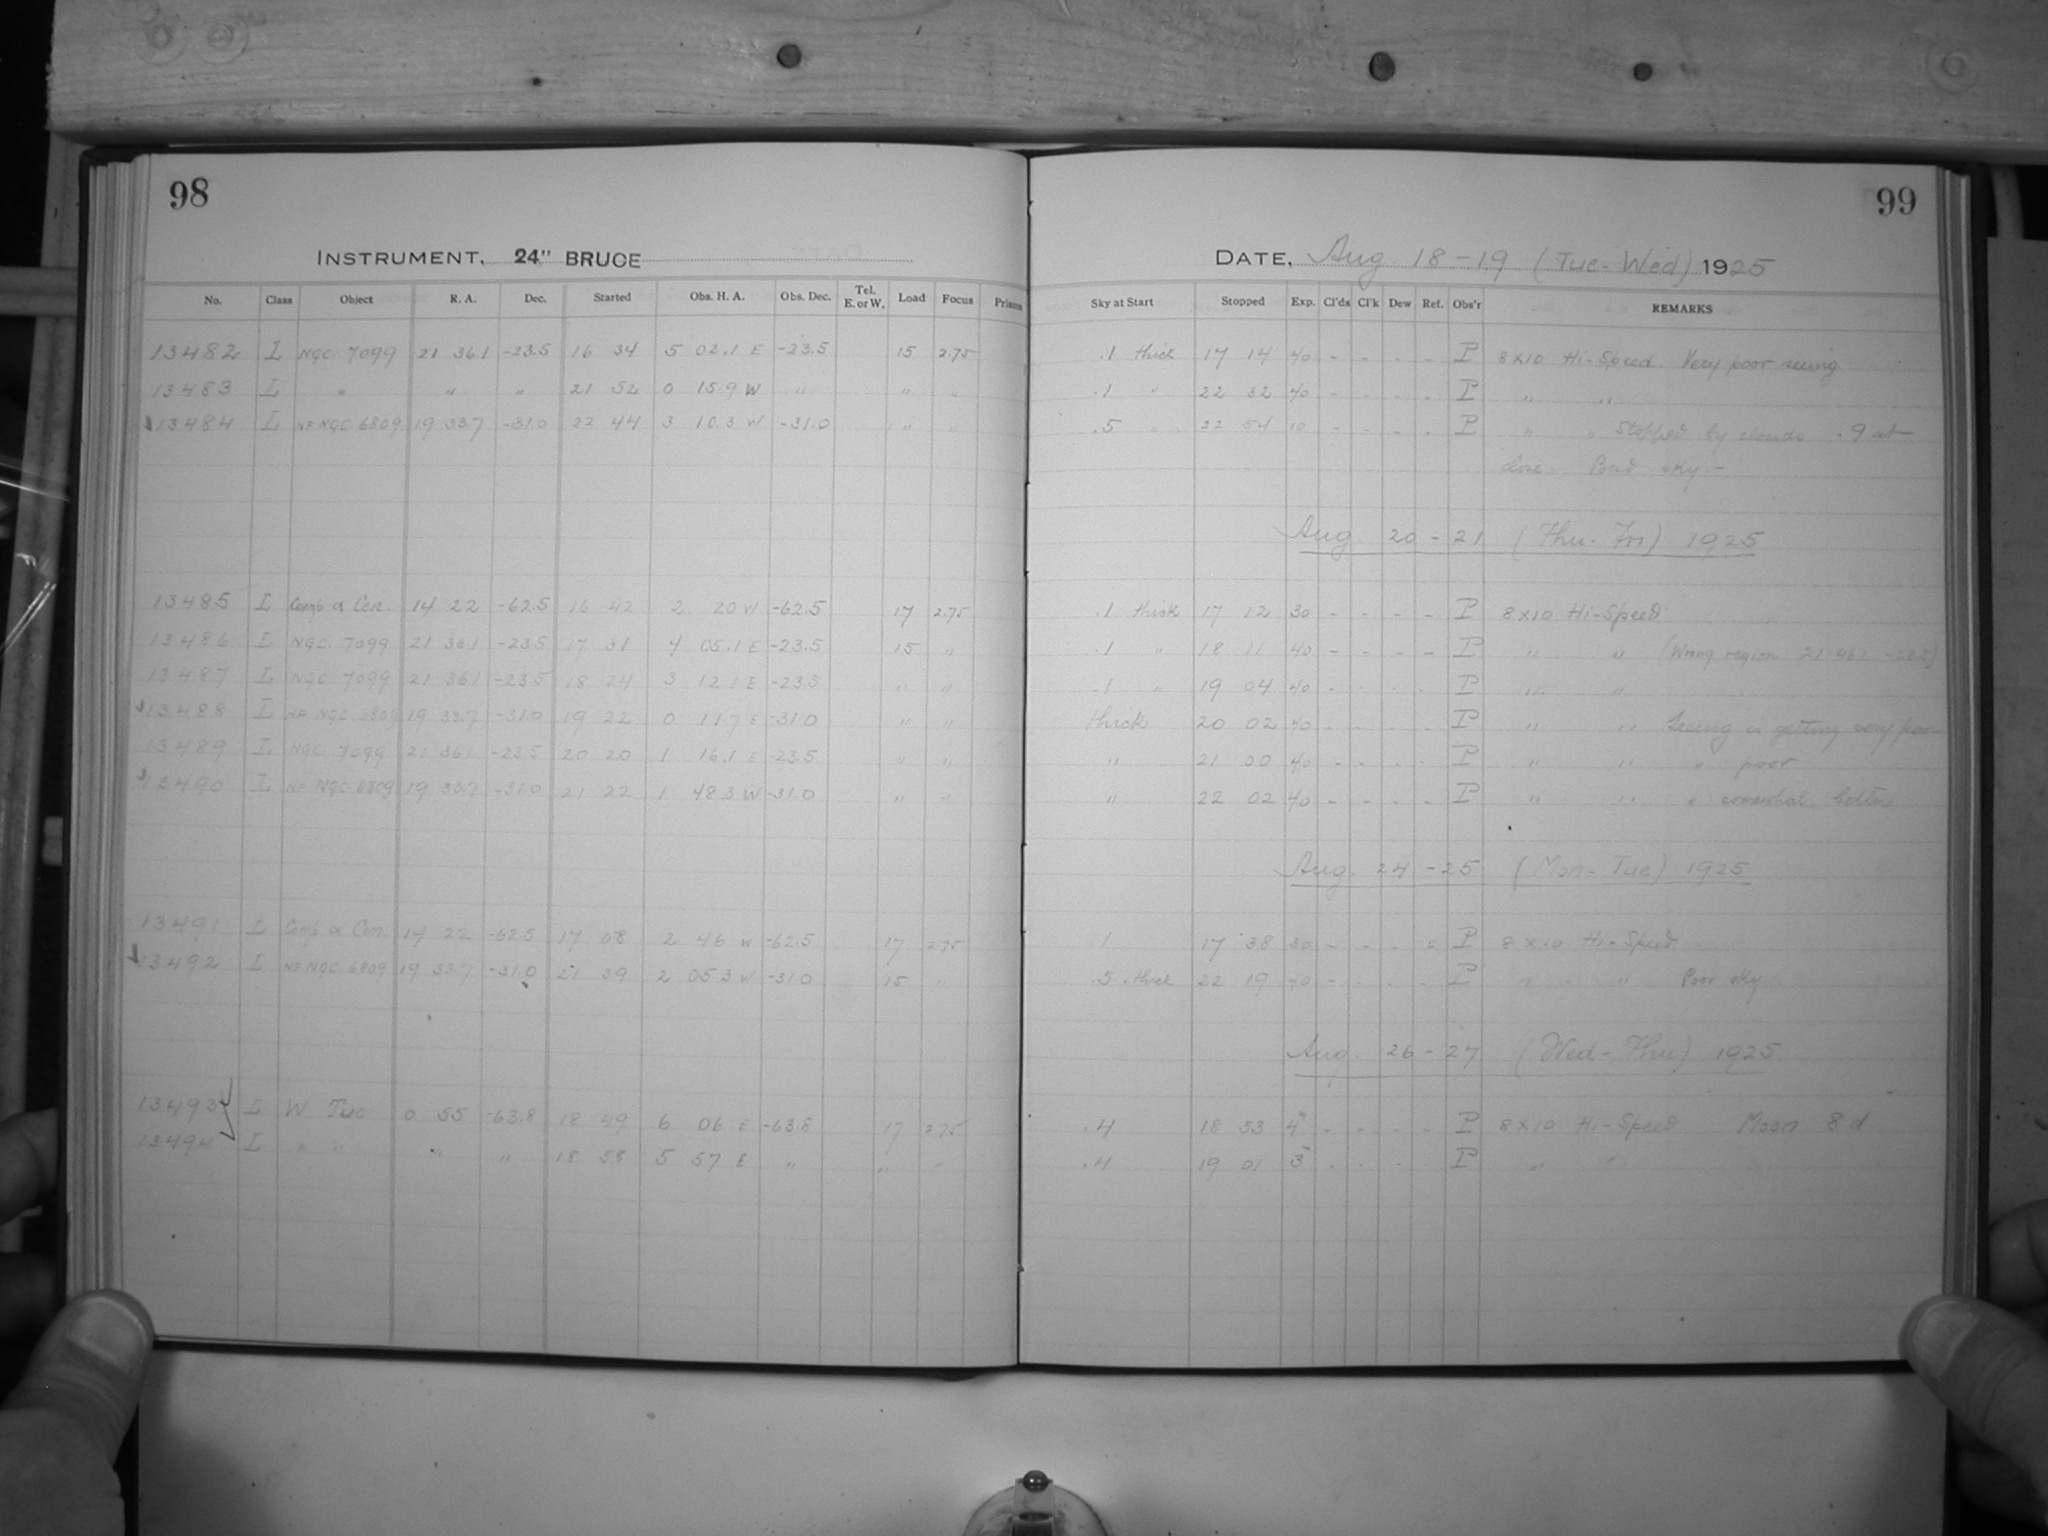 98
INSTRUMENT, 24" BRUCE
No. Class Object R. A. Dec. Started Obs. H. A. Obs. Dec. Tel. E. or W. Load Focus Prisms
13482 L NGC 7099 21 36.1 -23.5 16 34 5 02.1 E -23.5 15 2.75
13483 L " " " 21 52 0 15.9 W " " "
13484 L NF NGC 6809 19 33.7 -31.0 22 44 3 10.3 W -31.0 " "
13485 L Comp α Cen. 14 22 -62.5 16 42 2 20 W -62.5 17 2.75
13486 L NGC 7099 21 36.1 -23.5 17 31 4 05.1 E -23.5 15 "
13487 L NGC 7099 21 36.1 -23.5 18 24 3 12.1 E -23.5 " "
13488 L NF NGC 6809 19 33.7 -31.0 19 22 0 11.7 E -31.0 " "
13489 L NGC 7099 21 36.1 -23.5 20 20 1 16.1 E -23.5 " "
13490 L NF NGC 6809 19 33.7 -31.0 21 22 1 48.3 W -31.0 " "
13491 L Comp α Cen. 14 22 -62.5 17 08 2 46 W -62.5 17 2.75
13492 L NF NGC 6809 19 33.7 -31.0 21 39 2 05.3 W -31.0 15 "
13493 L W Tuc 0 55 -63.8 18 49 6 06 E -63.8 17 2.75
13494 L " " " " 18 58 5 57 E " " "
99
DATE, Aug 18-19 (Tue-Wed) 1925
Sky at Start Stopped Exp. Cl'ds Cl'k Dew Ref. Obs'r REMARKS
.1 thick 17 14 40 - - - - P 8x10 Hi-Speed. Very poor seeing
.1 " 22 32 40 - - - - P " "
.5 " 22 54 10 - - - - P " " Stopped by clouds .9 at
close - Bad sky. -
Aug. 20-21 (Thu-Fri) 1925
.1 thick 17 12 30 - - - - P 8x10 Hi-Speed
.1 " 18 11 40 - - - - P " " (Wrong region 21 46.1 -23.5)
.1 " 19 04 40 - - - - P " "
thick 20 02 40 - - - - P " " Seeing is getting very poor
" 21 00 40 - - - - P " " " poor
" 22 02 40 - - - - P " " " somewhat better
Aug. 24-25 (Mon-Tue) 1925
.1 17 38 30 - - - - P 8x10 Hi-Speed
.5 thick 22 19 40 - - - - P " " Poor sky
Aug. 26-27 (Wed-Thu) 1925
.4 18 53 4 - - - - P 8x10 Hi-Speed Moon 8 d
.4 19 01 3 - - - - P " "